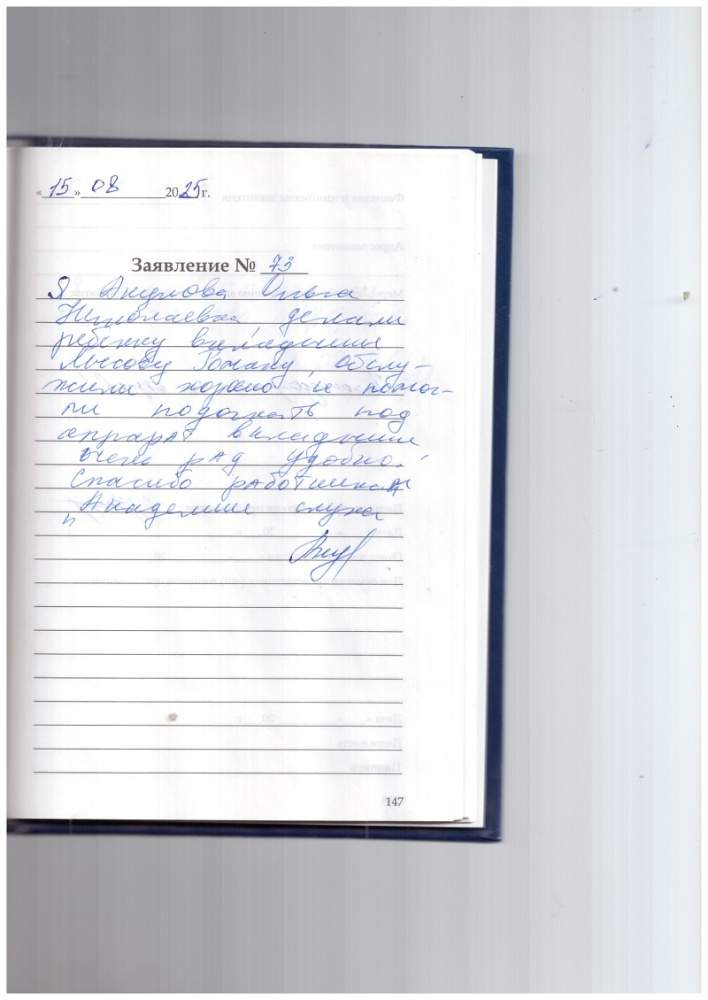 «15» 08 2025г.
Заявление № 73
Я Акулова Ольга
Николаевна, делали
ребёнку вкладыши
Лысову Роману, обслу-
жили хорошо и помог-
ли подогнать под
аппарат вкладыши
очень рад удобно.
Спасибо работникам
"Академии слуха
147